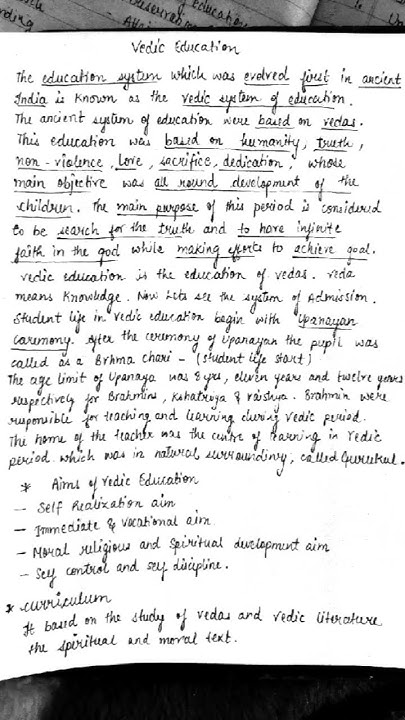 Vedic Education
The education system which was evolved first in ancient
India is known as the vedic system of education.
The ancient system of education were based on vedas.
This education was based on humanity, truth,
non-violence, love, sacrifice, dedication, whose
main objective was all round development of the
children. The main purpose of this period is considered
to be search for the truth and to have infinite
faith in the god while making efforts to achieve goal.
vedic education is the education of vedas. veda
means knowledge. Now lets see the system of Admission.
Student life in vedic education begin with Upanayan
caremony. After the ceremony of Upanayan the pupil was
called as a Brhma chari - (student life start)
The age limit of Upanaya was 8 yrs, eleven years and twelve years
respectively for Brahmins, Kshatriya & Vaishya. Brahmin were
responsible for teaching and learning during vedic period.
The home of the teacher was the centre of learning in vedic
period. which was in natural surroundiny, called Gurukul.
* Aims of Vedic Education
- Self Realization aim
- Immediate & vocational aim
- Moral religious and Spiritual development aim
- Sey control and sey discipline.
* curriculum
It based on the study of vedas and vedic literature
the spiritual and moral text.